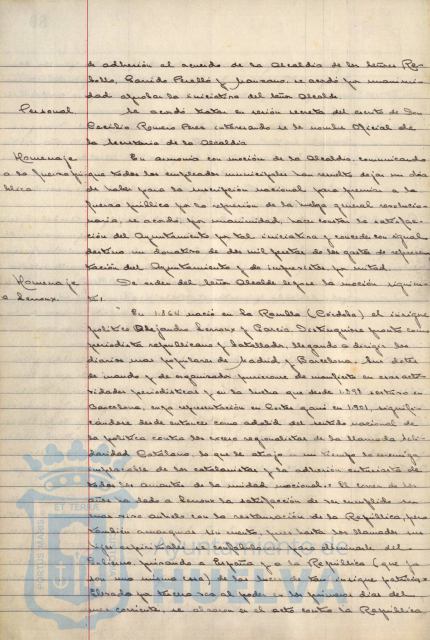 de adhesión al acuerdo de la Alcaldía de los Señores Re-
bollo, Garrido Perelló y Manzano, se acordó por unanimi-
dad aprobar la iniciativa del Señor Alcalde.
Personal. Se acordó tratar en sesión secreta del asunto de Don
Cecilio Romero Pérez interesando se le nombre Oficial de
la Secretaría de la Alcaldía
Homenaje En armonía con moción de la Alcaldía, comunicando
a la fuerza pú- que todos los empleados municipales han resuelto dejar un día
blica. de haber para la suscripción nacional para premiar a la
fuerza pública por la represión de la huelga general revolucio-
naria, se acordó, por unanimidad, hacer constar la satisfac-
ción del Ayuntamiento por tal iniciativa y conceder con igual
destino un donativo de dos mil pesetas de los gastos de represen-
tación del Ayuntamiento y de imprevistos por mitad.
Homenaje De orden del Señor Alcalde leyose la moción siguien-
a Lerroux. te:
"En 1.864 nació en La Rambla (Córdoba) el insigne
político Alejandro Lerroux y García. Distinguiose pronto como
periodista republicano y batallador, llegando a dirigir los
diarios mas populares de Madrid y Barcelona. Sus dotes
de mando y de organizador pusieronse de manifiesto en sus activi-
dades periodísticas y en la lucha que desde 1.898 sostuvo en
Barcelona, cuya representación en Cortes ganó en 1.901, signifi-
cándose desde entonces como adalid del sentido nacional de
la política contra los excesos regionalistas de la llamada Soli-
daridad Catalana, lo que le atrajo a un tiempo la enemiga
implacable de los catalanistas y la adhesión entusiasta de
todos los amantes de la unidad nacional. El correr de los
años ha dado a Lerroux la satisfacción de ver cumplido su
mas vivo anhelo con la restauración de la República, pero
también amarguras
mirando a España y a la República (que ya
son una misma cosa)
llevado por tercera vez al poder en los primeros días del
mes corriente, se alzaron en el acto contra la República
PORTUS MARIS ET TERRAE
Ayuntamiento de
HUELVA